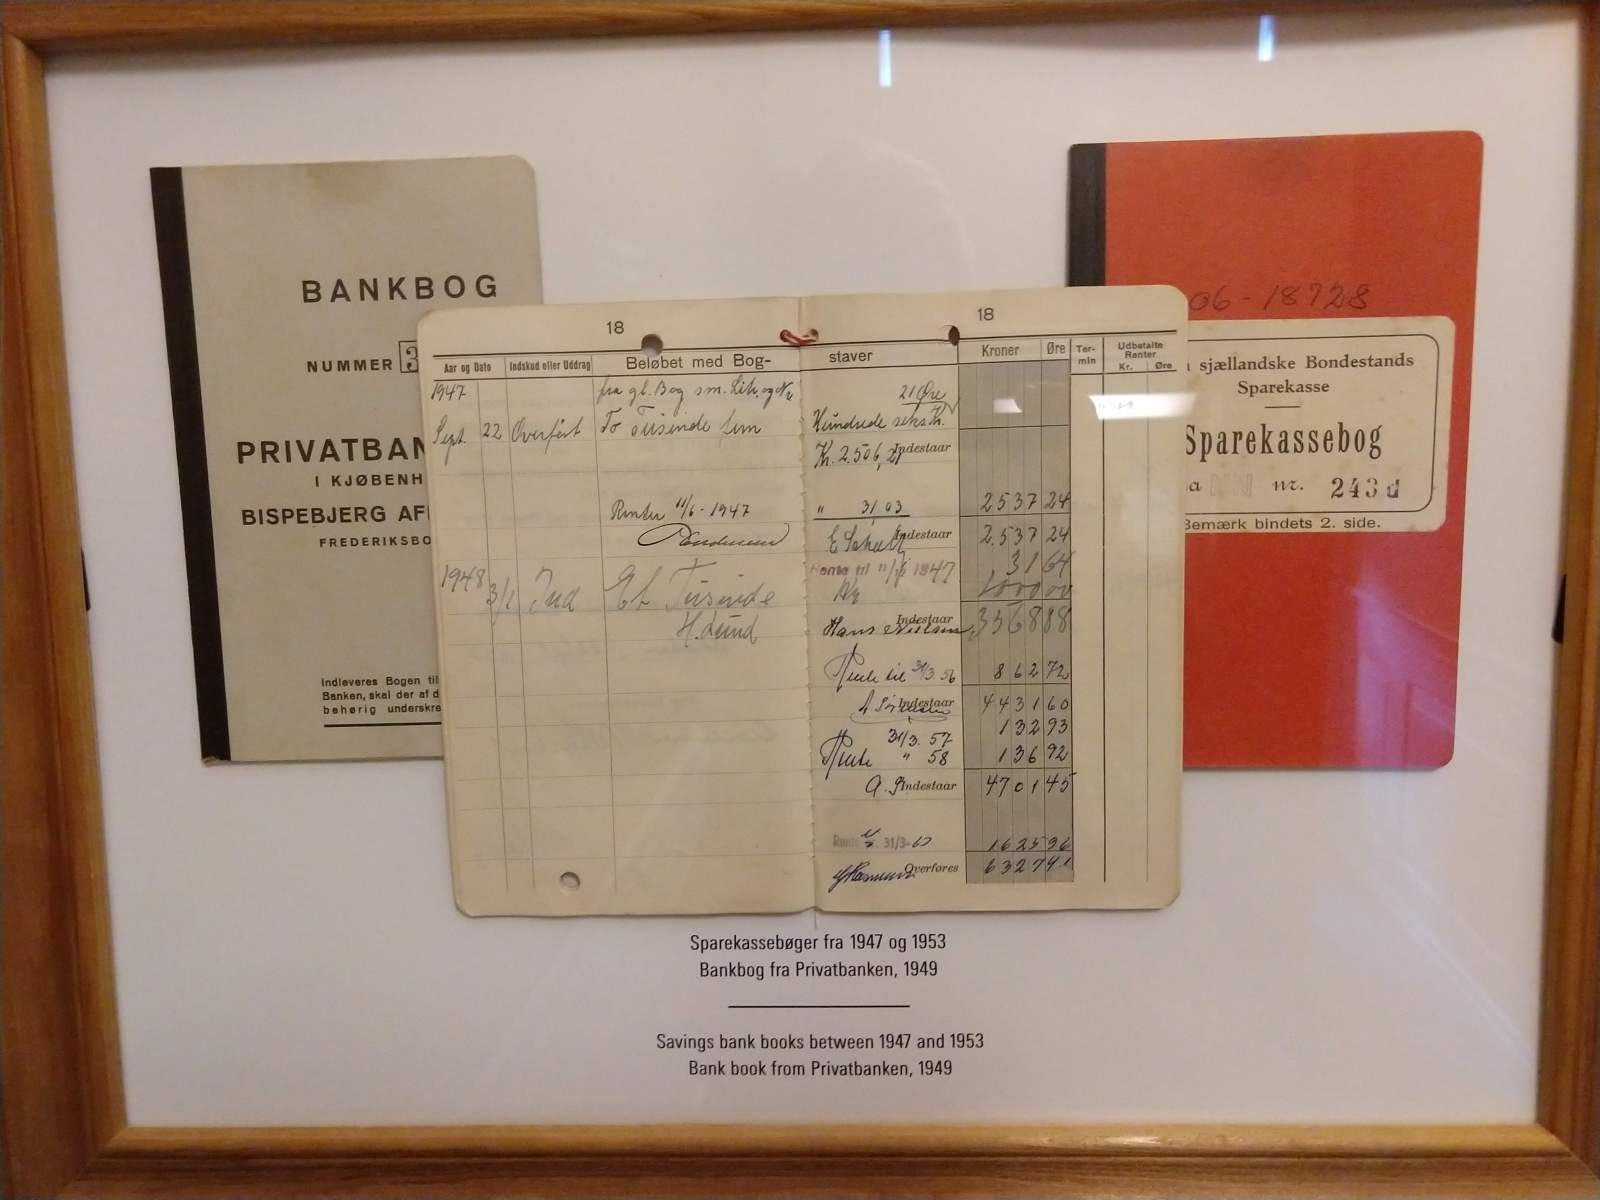 BANKBOG
NUMMER 3
PRIVATBAN
I KJØBENH
BISPEBJERG AF
FREDERIKSBO
Indleveres Bogen til
Banken, skal der af d
behørig underskre
18
Aar og Dato Indskud eller Uddrag Beløbet med Bog-
1947 fra gl. Bog sm. Litr. og Nr
Sept. 22 Overført To Tusinde fem
Renter 11/6 - 1947
1948 3/1 Ind Et Tusinde
H. Lund
18
staver Kroner Øre Ter-min Udbetalte Renter Kr. Øre
21 Øre
Hundrede seks Kr.
Kr. 2.506,21 Indestaar
" 31 03 2537 24
Indestaar 2.537 24
Rente til 1947 31 64
1000 00
Indestaar 3568 88
Hans Nielsen
Rente til 31/3 56 862 72
Indestaar 4431 60
31/3. 57 132 93
Rente " 58 136 92
Indestaar 4701 45
Rente 31/3- 1625 96
Overføres 6327 41
06-18728
sjællandske Bondestands
Sparekasse
Sparekassebog
nr. 243d
Bemærk bindets 2. side.
Sparekassebøger fra 1947 og 1953
Bankbog fra Privatbanken, 1949
Savings bank books between 1947 and 1953
Bank book from Privatbanken, 1949